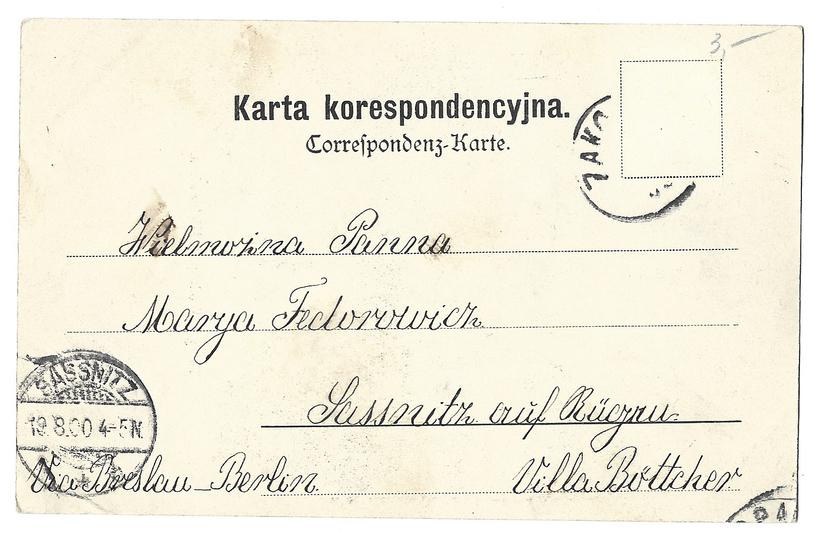 3,-
Karta korespondencyjna.
Correspondenz-Karte.
ZAKO
Wielmożna Panna
Marya Fedorowicz
Sassnitz auf Rügen.
SASSNITZ
19.8.00 4-5N.
Via Breslau-Berlin
Villa Böttcher